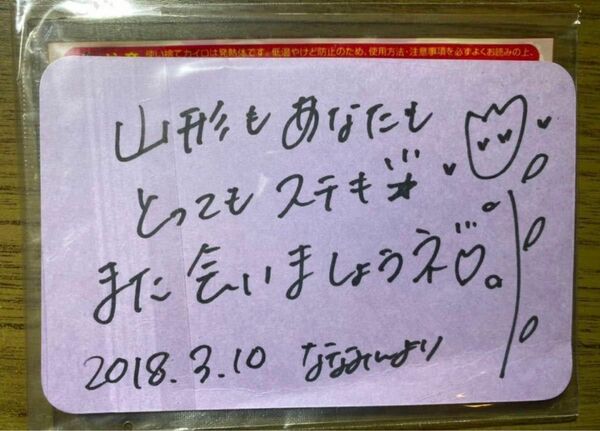 使い捨てカイロは発熱体です。低温やけど防止のため、使用方法・注意事項を必ずよくお読みの上、
山形もあなたも
とってもステキ
また会いましょうネ
2018.3.10 ななみんより